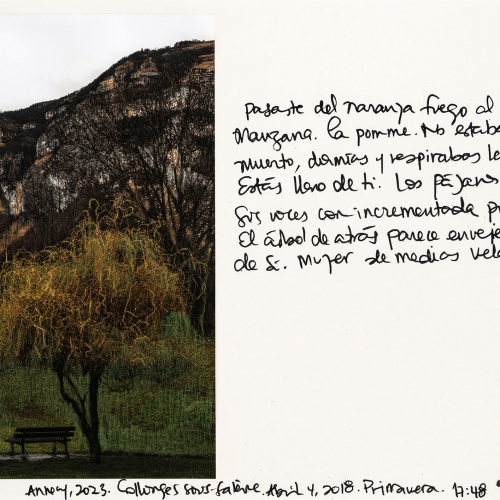 Pasaste del naranja fuego al
Manzana. La pomme. No estaba
muerto, dormías y respirabas
Estás lleno de ti. Los Pájaros
Sus voces con incrementada
El árbol de atrás parece
de sí. Mujer de medias
Annecy, 2023. Collonges sous-Salève. Abril 4, 2018. Primavera. 17:48